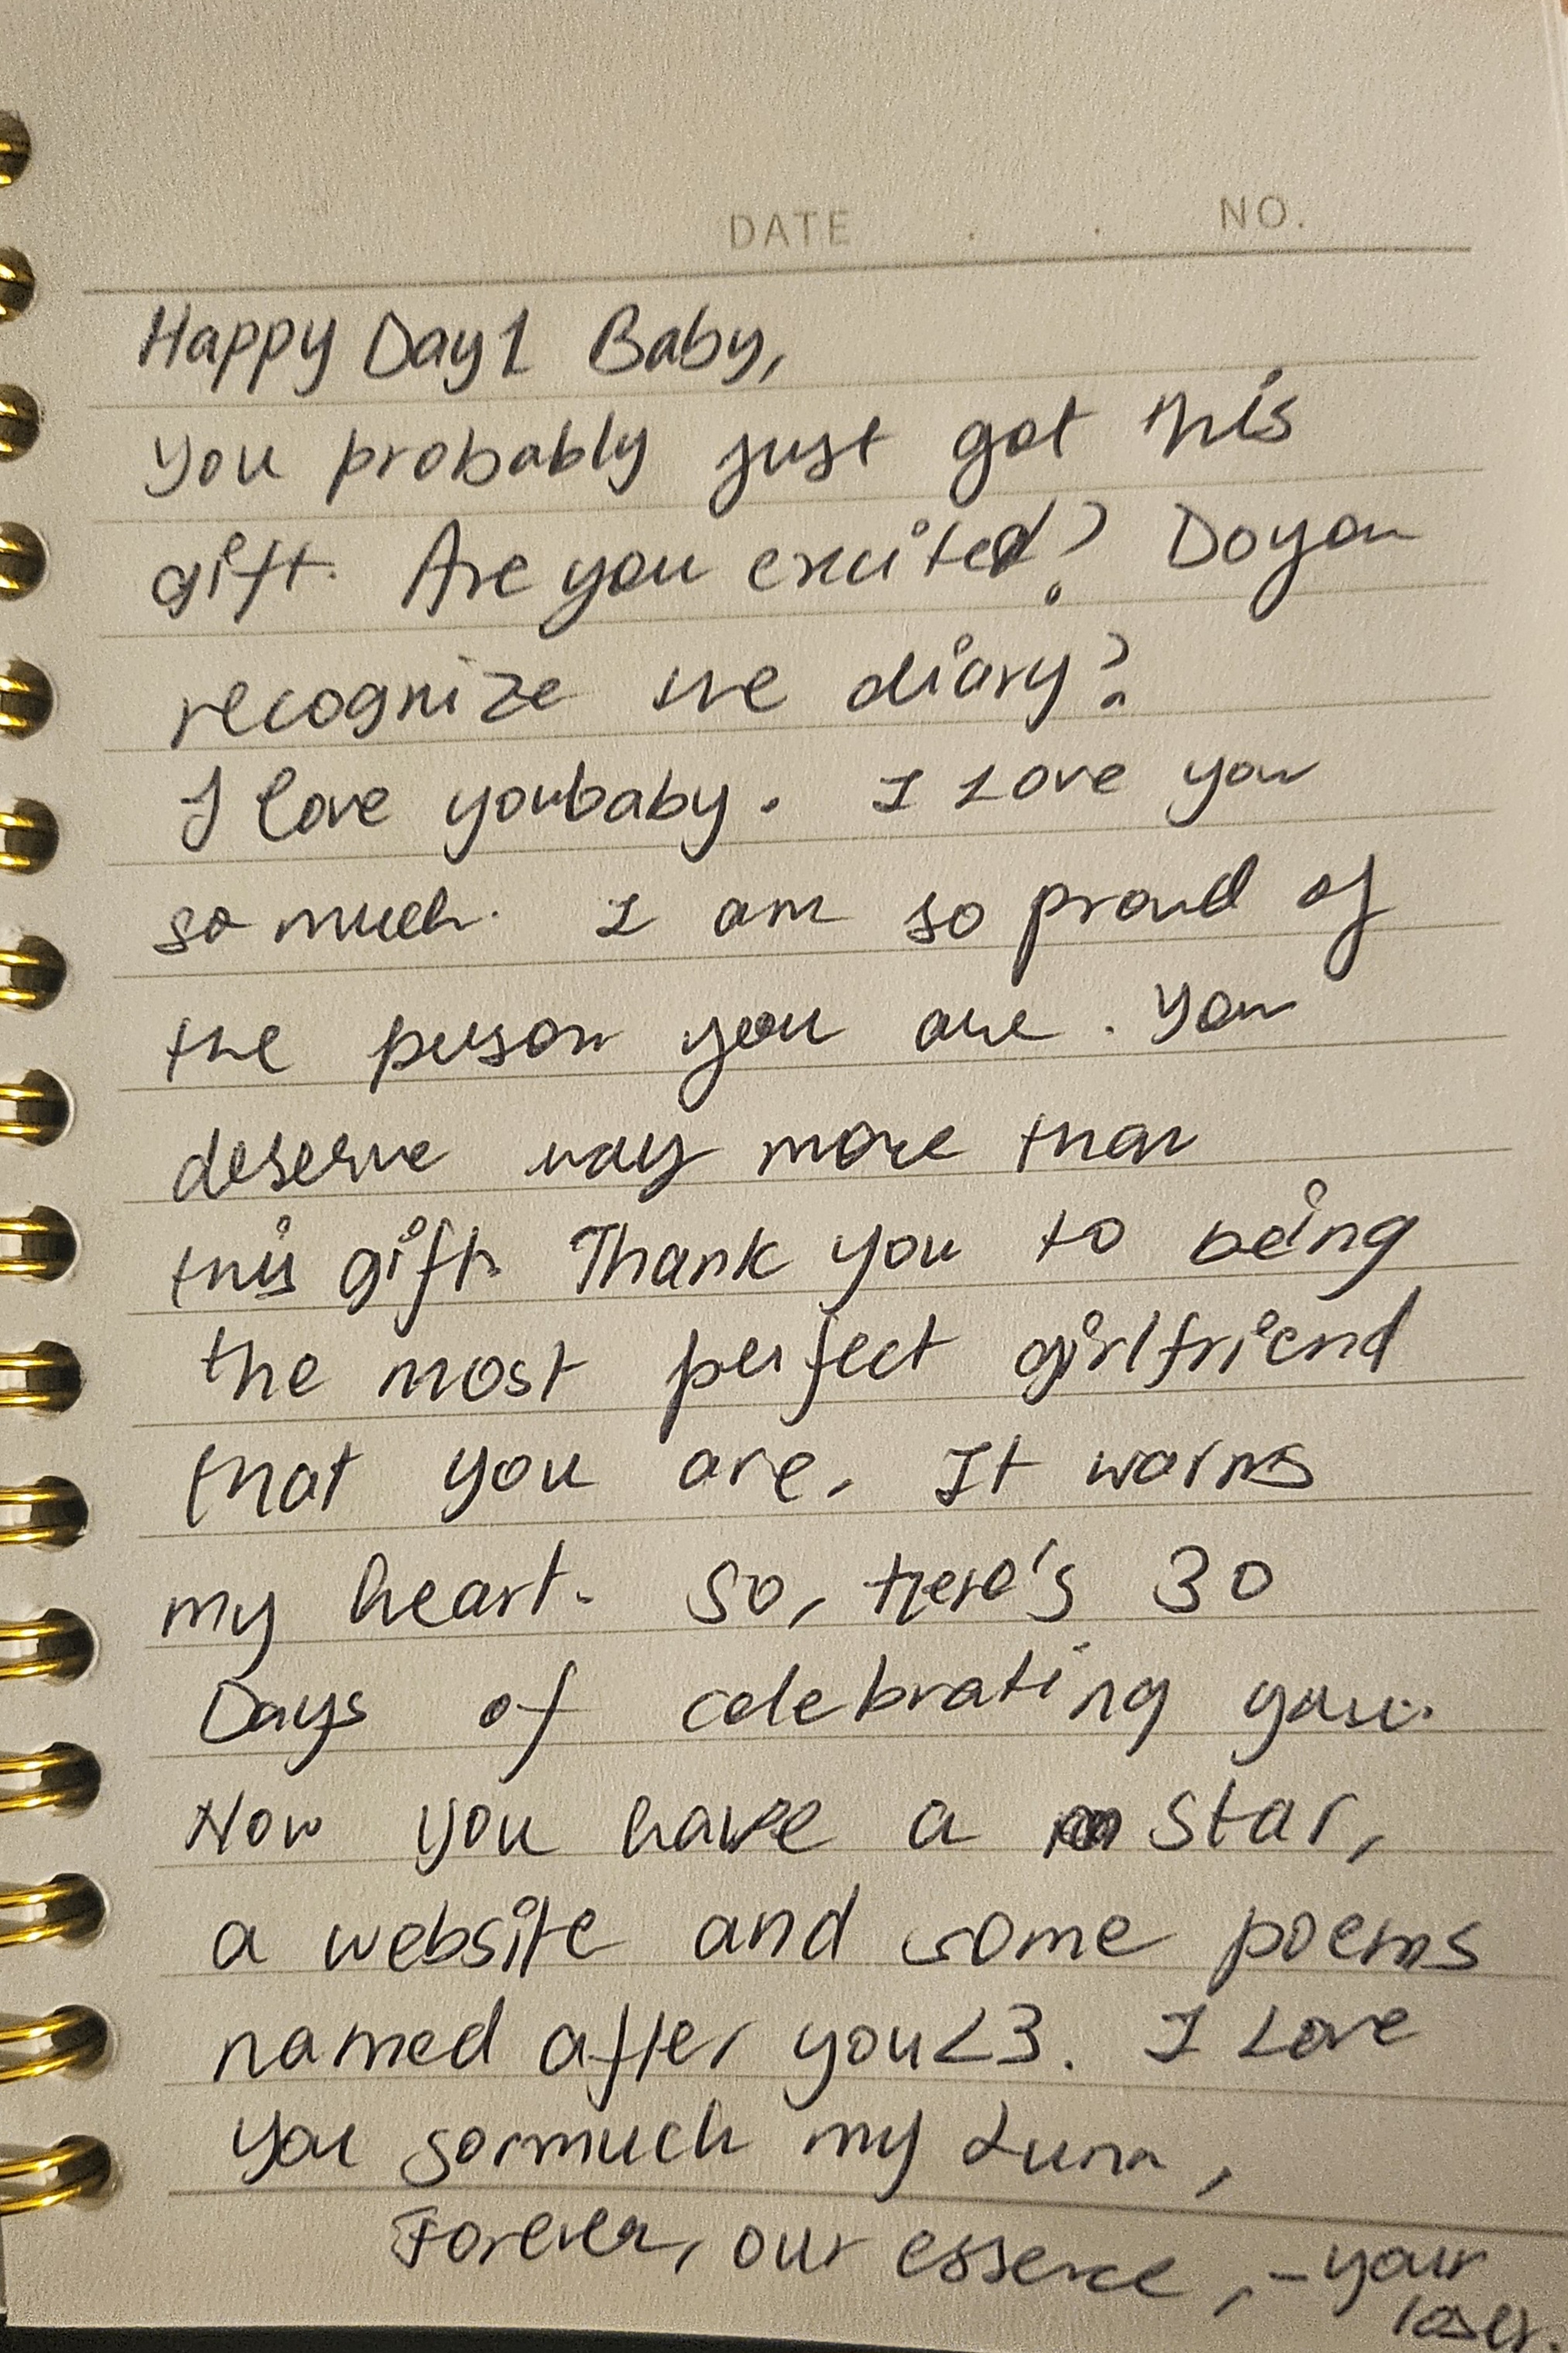 DATE . . NO.
Happy Day 1 Baby,
you probably just got this
gift. Are you excited? Do you
recognize the diary?
I love you baby. I Love you
so much. I am so proud of
the person you are. You
deserve way more than
this gift. Thank you to being
the most perfect girlfriend
that you are. It warms
my heart. So, there's 30
Days of celebrating you.
Now you have a star,
a website and some poems
named after you<3. I Love
you so much my Luna,
Forever, our essence, - your
loser.